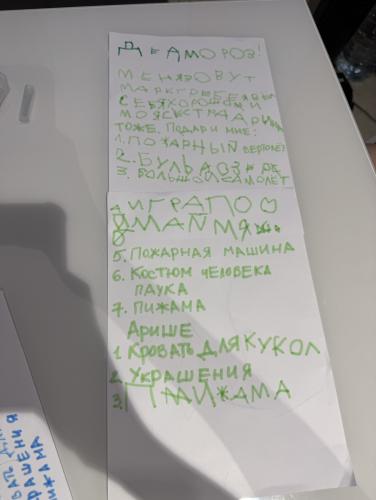 ДЕДМОРОЗ!
МЕНЯЗОВУТ
МАРКГРЕБЕЛ
СЕБЯХОРОШОМИ
МОЯСЕСТРААРИНА
ТОЖЕ. ПОДАРИ МНЕ:
1. ПОЖАРНЫЙ ВЕРТОЛЁТ
2. БУЛЬДОЗЕР
3. БОЛЬШОЙСАМОЛЁТ
4. ИГРАПОО
ЙМАЙ МЯ
5. ПОЖАРНАЯ МАШИНА
6. КОСТЮМ ЧЕЛОВЕКА
ПАУКА
7. ПИЖАМА
АРИШЕ
1. КРОВАТЬ ДЛЯКУКОЛ
2. УКРАШЕНИЯ
3. ПИЖАМА